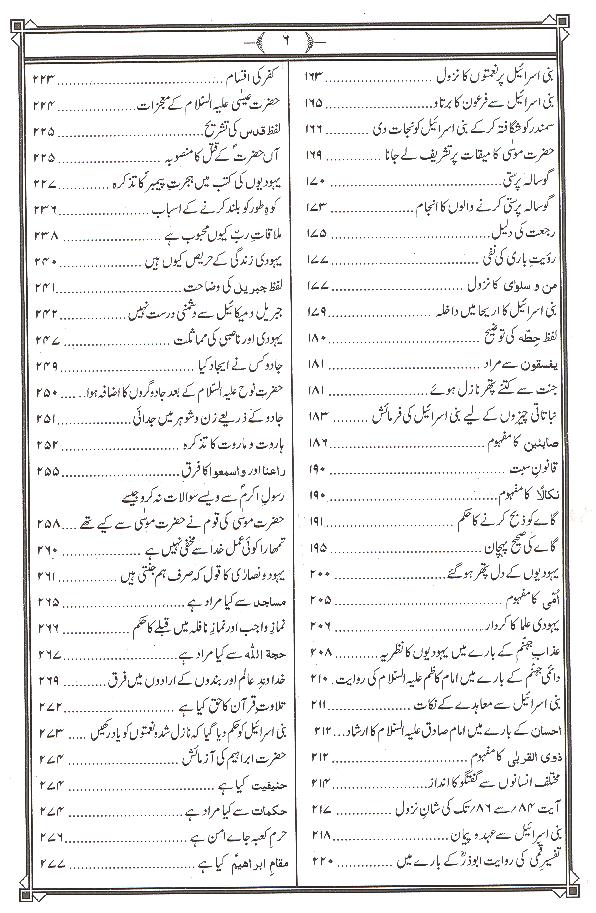 ۶
بنی اسرائیل پر نعمتوں کا نزول ........ ۱۶۳
بنی اسرائیل سے فرعون کا برتاو ........ ۱۶۵
سمندر کو شگافتہ کر کے بنی اسرائیل کو نجات دی ........ ۱۶۶
حضرت موسٰی کا میقات پر تشریف لے جانا ........ ۱۶۹
گوسالہ پرستی ........ ۱۷۰
گوسالہ پرستی کرنے والوں کا انجام ........ ۱۷۳
رجعت کی دلیل ........ ۱۷۵
رؤیتِ باری کی نفی ........ ۱۷۷
من و سلوٰی کا نزول ........ ۱۷۷
بنی اسرائیل کا اریحا میں داخلہ ........ ۱۷۹
لفظ حِطّه کی توضیح ........ ۱۸۰
یفسقون سے مراد ........ ۱۸۱
جنت سے کتنے پتھر نازل ہوئے ........ ۱۸۱
نباتاتی چیزوں کے لیے بنی اسرائیل کی فرمائش ........ ۱۸۳
صابئین کا مفہوم ........ ۱۸۶
قانونِ سبت ........ ۱۹۰
نکالًا کا مفہوم ........ ۱۹۰
گاے کو ذبح کرنے کا حکم ........ ۱۹۱
گاے کی صحیح پہچان ........ ۱۹۵
یہودیوں کے دل پتھر ہو گئے ........ ۲۰۰
اُمّی کا مفہوم ........ ۲۰۵
یہودی علما کا کردار ........ ۲۰۶
عذابِ جہنم کے بارے میں یہودیوں کا نظریہ ........ ۲۰۸
دائمی جہنم کے بارے میں امام کاظم علیہ السّلام کی روایت ... ۲۱۰
بنی اسرائیل سے معاہدے کے نکات ........ ۲۱۱
احسان کے بارے میں امام صادق علیہ السّلام کا ارشاد ... ۲۱۲
ذوی القربٰی کا مفہوم ........ ۲۱۲
مختلف انسانوں سے گفتگو کا انداز ........ ۲۱۴
آیت ۸۴ سے ۸۶ تک کی شانِ نزول ........ ۲۱۷
بنی اسرائیل سے عہد و پیمان ........ ۲۱۸
تفسیر قمی کی روایت ابوذرؓ کے بارے میں ........ ۲۲۰
کفر کی اقسام ........ ۲۲۳
حضرت عیسٰی علیہ السّلام کے معجزات ........ ۲۲۴
لفظ قدس کی تشریح ........ ۲۲۵
آں حضرتؐ کے قتل کا منصوبہ ........ ۲۲۵
یہودیوں کی کتب میں ہجرتِ پیمبرؐ کا تذکرہ ........ ۲۲۷
کوہِ طور کو بلند کرنے کے اسباب ........ ۲۳۶
ملاقاتِ ربّ کیوں محبوب ہے ........ ۲۳۸
یہودی زندگی کے حریص کیوں ہیں ........ ۲۴۰
لفظ جبریل کی وضاحت ........ ۲۴۱
جبریل و میکائیل سے دشمنی درست نہیں ........ ۲۴۲
یہودی اور ناصبی کی مماثلت ........ ۲۴۷
جادو کس نے ایجاد کیا ........ ۲۴۹
حضرت نوح علیہ السّلام کے بعد جادوگروں کا اضافہ ہوا ... ۲۵۰
جادو کے ذریعے زن و شوہر میں جدائی ........ ۲۵۱
ہاروت و ماروت کا تذکرہ ........ ۲۵۲
راعنا اور واسمعوا کا فرق ........ ۲۵۵
رسولِ اکرمؐ سے ویسے سوالات نہ کرو جیسے
حضرت موسٰی کی قوم نے حضرت موسٰی سے کیے تھے ... ۲۵۸
تمھارا کوئی عمل خدا سے مخفی نہیں ہے ........ ۲۶۰
یہود و نصارٰی کا قول کہ صرف ہم جنتی ہیں ........ ۲۶۱
مساجد سے کیا مراد ہے ........ ۲۶۵
نمازِ واجب اور نمازِ نافلہ میں قبلے کا حکم ........ ۲۶۶
حجة اللّٰه سے کیا مراد ہے ........ ۲۶۷
خداوندِ عالَم اور بندوں کے ارادوں میں فرق ........ ۲۶۹
تلاوتِ قرآن کا حق کیا ہے ........ ۲۷۲
بنی اسرائیل کو حکم دیا گیا کہ نازل شدہ نعمتوں کو یاد رکھیں ... ۲۷۳
حضرت ابراہیم کی آزمائش ........ ۲۷۴
حنیفیت کیا ہے ........ ۲۷۴
حکمات سے کیا مراد ہے ........ ۲۷۴
حرمِ کعبہ جاے امن ہے ........ ۲۷۶
مقامِ ابراهیمؑ کیا ہے ........ ۲۷۷